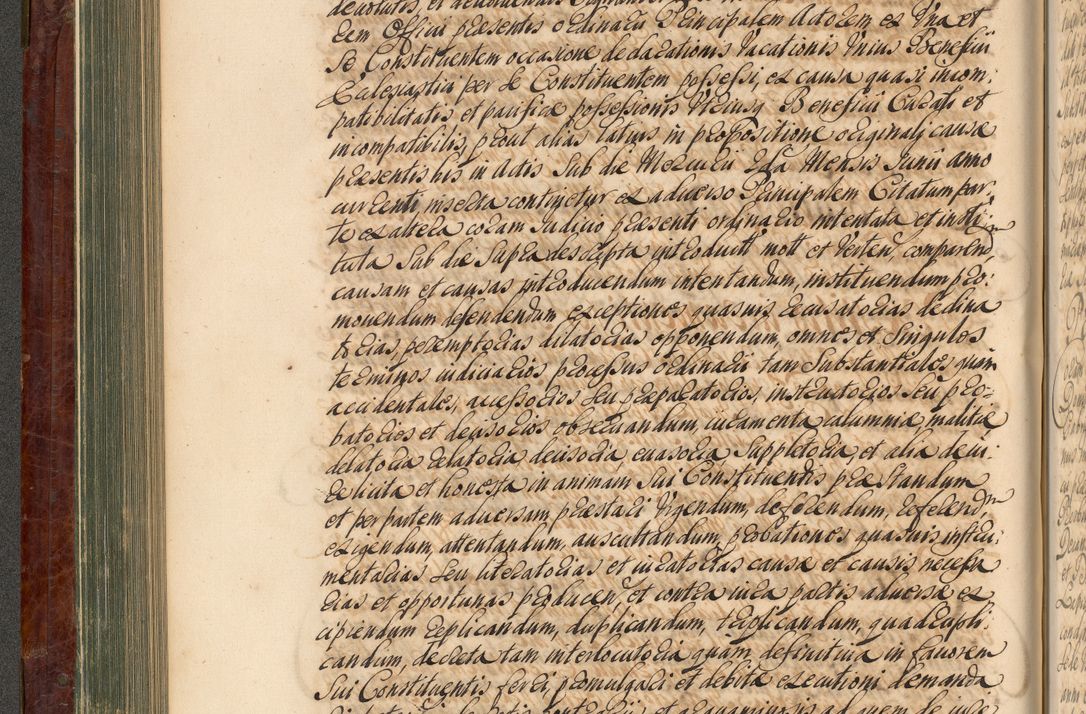 rem Officii praesentis ordinarii Principalem Actorem ex Una et
Se Constituentem occasione declarationis Vacationis Unius Beneficii
Ecclesiastici per Se Constituentem possessi, ex causa quasi incom:
patibilitatis et pacificae possessionis Utriusq Beneficii Curati et
incompatibilis, prout alias latius in propositione originalj causae
praesentis his in Actis Sub die Mercurii Mensis Junii anno
currenti, inserta continetur ex adverso Principalem Citatum par,
te ex altera coram Judicio praesenti ordinario intentata et insti:
tuta Sub die Supra descripta introducti mott et Verten, comparendm,
causam et causas introducendum intentandum, instituendum pro:
movendum defendendum exceptiones quasvis recusatorias declina
torias, peremptorias dilatorias opponendum, omnes et Singulos
terminos iudiciarios processus ordinarii tam Substantiales, quam
accidentales, accessorios Seu praeparatorios, instructorios Seu pro=
batorios et decisorios observandum, iuramenta calumniae, malitiae
delatoria relatoria decisoria, euasoria Suppletoria, et alia de iu:
re licita et honesta in animam Sui Constituentis praestandum
et per partem adversam praestari Vigendum, deferendum, referendm,
exigendum, attentandum, auscultandum, probationes quasvis instru,
mentarias Seu literatorias et iuratorias causae et causis necessa
rias et opportunas producen, et contra iura partis adversae ex
cipiendum replicandum, duplicandum, triplicandum, quadrupli:
candum, decreta tam interlocutoria quam definitiva in favorem
Sui Constituentis ferri promulgari et debitae executioni demanda